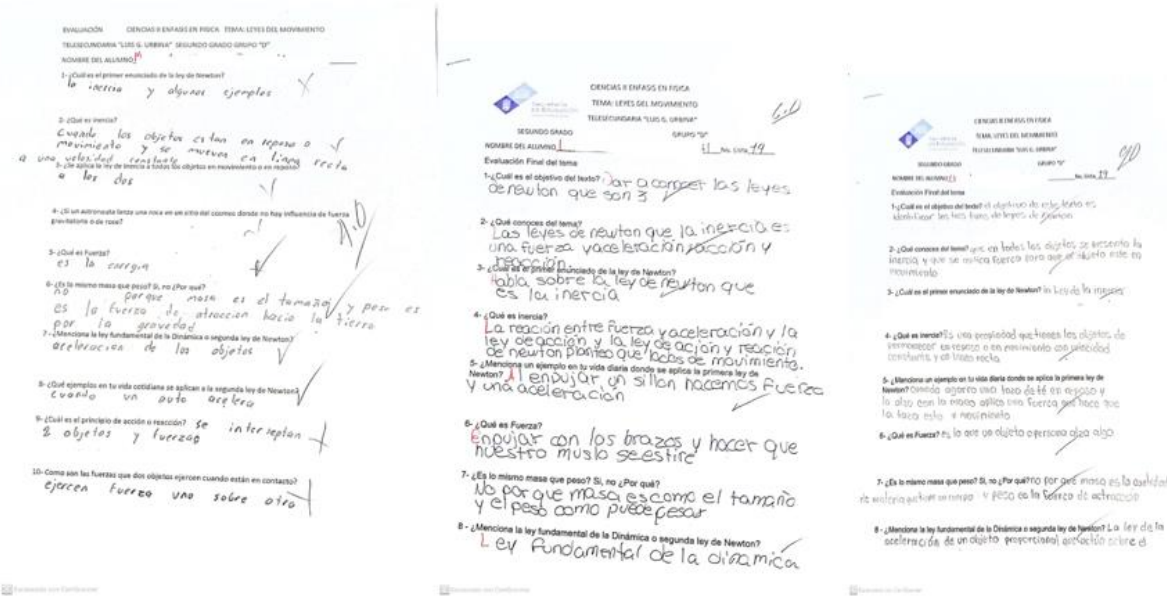 EVALUACIÓN CIENCIAS II ENFASIS EN FISICA TEMA: LEYES DEL MOVIMIENTO
TELESECUNDARIA "LUIS G. URBINA" SEGUNDO GRADO GRUPO "D"
NOMBRE DEL ALUMNO:
1-¿Cuál es el primer enunciado de la ley de Newton?
la inercia y algunos ejemplos
2-¿Qué es inercia?
Cuando los objetos estan en reposo o
movimiento y se mueven en linea recta
a una velocidad constante
3-¿Se aplica la ley de inercia a todos los objetos en movimiento o en reposo?
a los dos
4-¿Si un astronauta lanza una roca en un sitio del cosmos donde no hay influencia de fuerza
gravitatoria o de roce?
5-¿Qué es Fuerza?
es la energia
6-¿Es lo mismo masa que peso? Si, no ¿Por qué?
no porque masa es el tamaño y peso es
es la fuerza de atraccion hacia la tierra
por la gravedad
7-¿Menciona la ley fundamental de la Dinámica o segunda ley de Newton?
aceleracion de los objetos
8-¿Qué ejemplos en tu vida cotidiana se aplican a la segunda ley de Newton?
cuando un auto acelera
9-¿Cuál es el principio de acción o reacción? se interseptan
2 objetos y fuerzas
10-Como son las fuerzas que dos objetos ejercen cuando están en contacto?
ejercen fuerza uno sobre otro
CIENCIAS II ENFASIS EN FISICA
TEMA: LEYES DEL MOVIMIENTO
TELESECUNDARIA "LUIS G. URBINA"
SEGUNDO GRADO GRUPO "D"
6.0
NOMBRE DEL ALUMNO No. Lista 19
Evaluación Final del tema
1-¿Cuál es el objetivo del texto? Dar a conocer las leyes
de newton que son 3
2- ¿Qué conoces del tema?
Las leyes de newton que la inercia es
una fuerza y aceleración y acción y
reacción.
3- ¿Cuál es el primer enunciado de la ley de Newton?
Habla sobre la ley de newton que
es la inercia
4- ¿Qué es inercia?
La reación entre fuerza y aceleración y la
ley de acción y la ley de ación y reación
de newton planteo que de movimiento.
5- ¿Menciona un ejemplo en tu vida diaria donde se aplica la primera ley de
Newton? Al enpujar un sillon hacemos fuerza
y una aceleración
6- ¿Qué es Fuerza?
Enpujar con los brazos y hacer que
nuestro muslo se estire
7- ¿Es lo mismo masa que peso? Si, no ¿Por qué?
No por que masa es como el tamaño
y el peso como puede pesar
8 - ¿Menciona la ley fundamental de la Dinámica o segunda ley de Newton?
Ley fundamental de la dinamica
CIENCIAS II ENFASIS EN FISICA
TEMA: LEYES DEL MOVIMIENTO
TELESECUNDARIA "LUIS G. URBINA"
SEGUNDO GRADO GRUPO "D"
NOMBRE DEL ALUMNO No. Lista 19
Evaluación Final del tema
1-¿Cuál es el objetivo del texto? el objetivo de este texto es
identificar las tres leyes de Newton
2- ¿Qué conoces del tema? que en todos los objetos se presenta la
inercia y que se aplica fuerza para que el objeto este en
movimiento
3- ¿Cuál es el primer enunciado de la ley de Newton? la Ley de la inercia
4- ¿Qué es inercia? Es una propiedad que tienen los objetos de
permanecer en reposo o en movimiento con velocidad
constante y en linea recta
5- ¿Menciona un ejemplo en tu vida diaria donde se aplica la primera ley de
Newton? Cuando agarro una taza de té en reposo y
la alzo con la mano aplico una fuerza que hace que
la taza este movimiento
6- ¿Qué es Fuerza? Es lo que un objeto o persona alza algo
7- ¿Es lo mismo masa que peso? Si, no ¿Por qué? no por que masa es la cantidad
de materia y peso es la fuerza de actraccion
8 - ¿Menciona la ley fundamental de la Dinámica o segunda ley de Newton? La ley de la
aceleración de un objeto proporcional sobre el